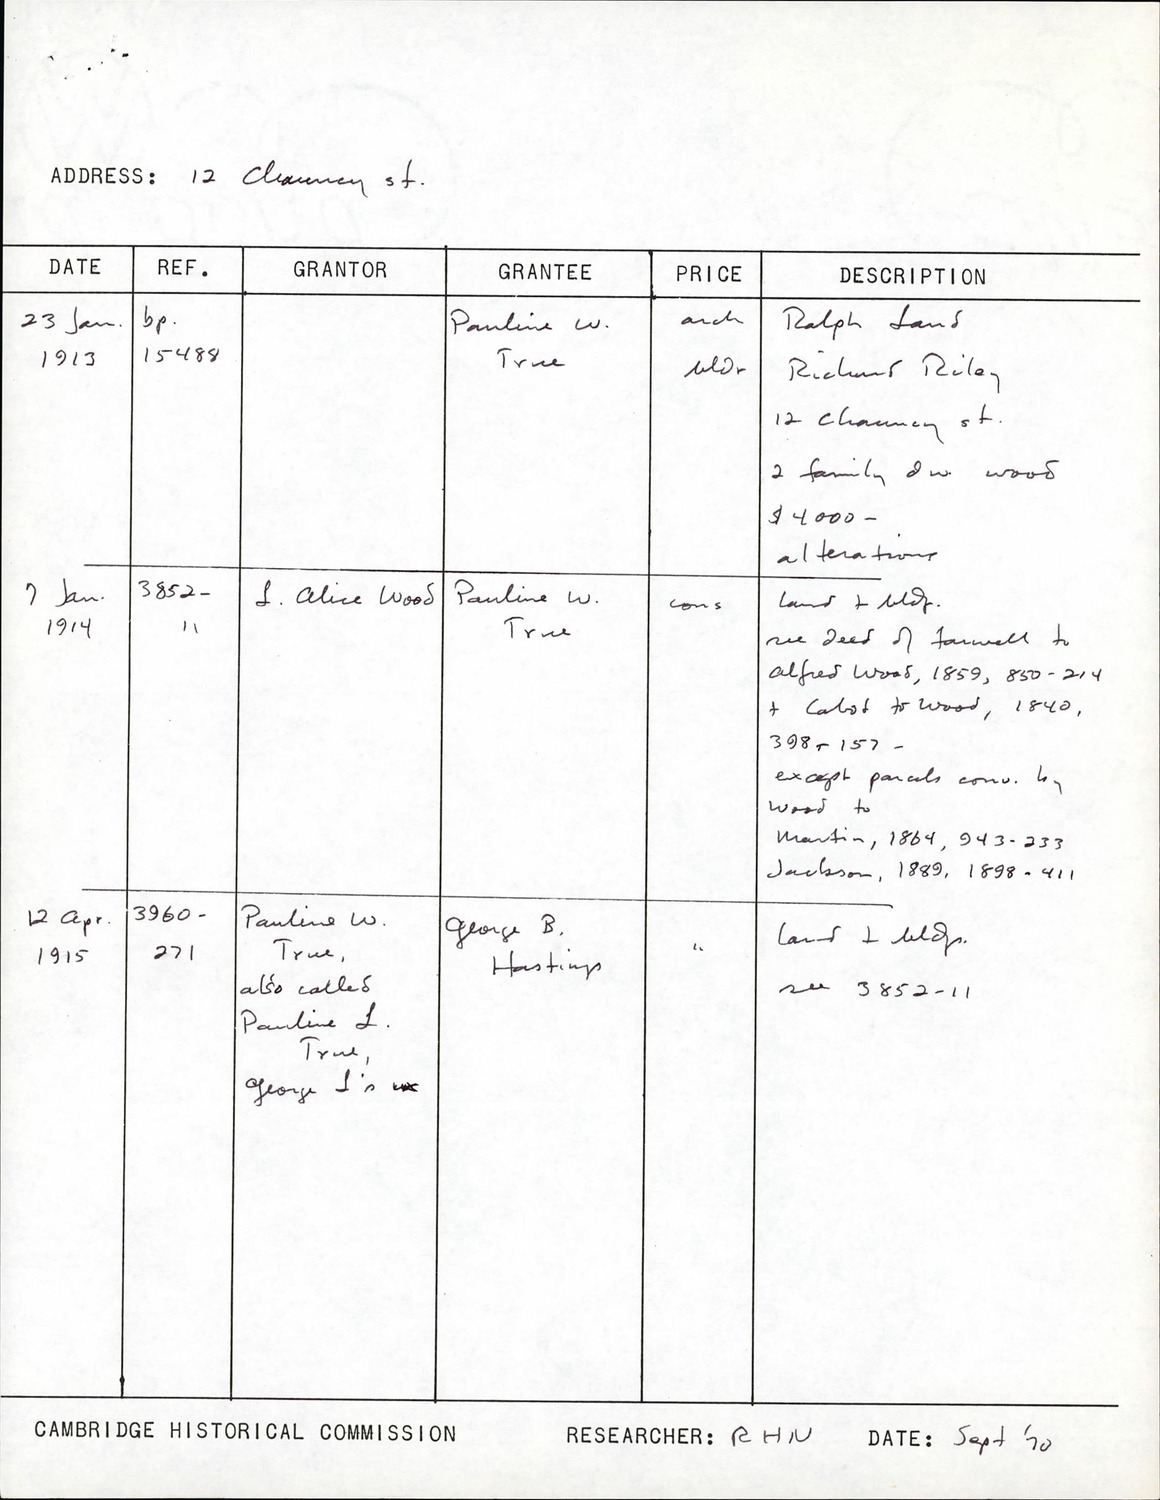 ADDRESS: 12 Chauncy st.
DATE REF. GRANTOR GRANTEE PRICE DESCRIPTION
23 Jan. 1913
bp. 15488
Pauline W. True
arch
bldr
Ralph Land
Richard Riley
12 Chauncy st.
2 family dw. wood
$4000-
alterations
7 Jan. 1914
3852-
11
L. Alice Wood
Pauline W.
True
cons
land + bldg.
see deed of Farwell to
Alfred Wood, 1859, 850-214
+ Cabot to Wood, 1840,
398-157-
except parcels conv. by
Wood to
Martin, 1864, 943-233
Jackson, 1889, 1898-411
12 Apr.
1915
3960-
271
Pauline W.
True,
also called
Pauline L.
True,
George L's ux
George B.
Hastings
"
land + bldgs.
see 3852-11
CAMBRIDGE HISTORICAL COMMISSION RESEARCHER: RHN DATE: Sept '70